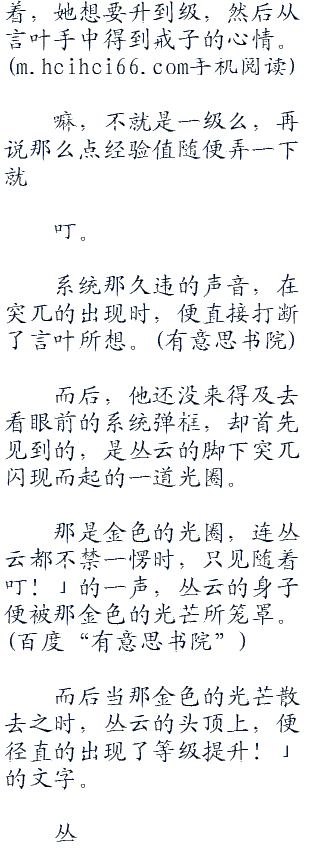 着，她想要升到级，然后从
言叶手中得到戒子的心情。
(m.hcihci66.com手机阅读)
嘛，不就是一级么，再
说那么点经验值随便弄一下
就
叮。
系统那久违的声音，在
突兀的出现时，便直接打断
了言叶所想。(有意思书院)
而后，他还没来得及去
看眼前的系统弹框，却首先
见到的，是丛云的脚下突兀
闪现而起的一道光圈。
那是金色的光圈，连丛
云都不禁一愣时，只见随着
叮！」的一声，丛云的身子
便被那金色的光芒所笼罩。
(百度“有意思书院”)
而后当那金色的光芒散
去之时，丛云的头顶上，便
径直的出现了等级提升！」
的文字。
丛